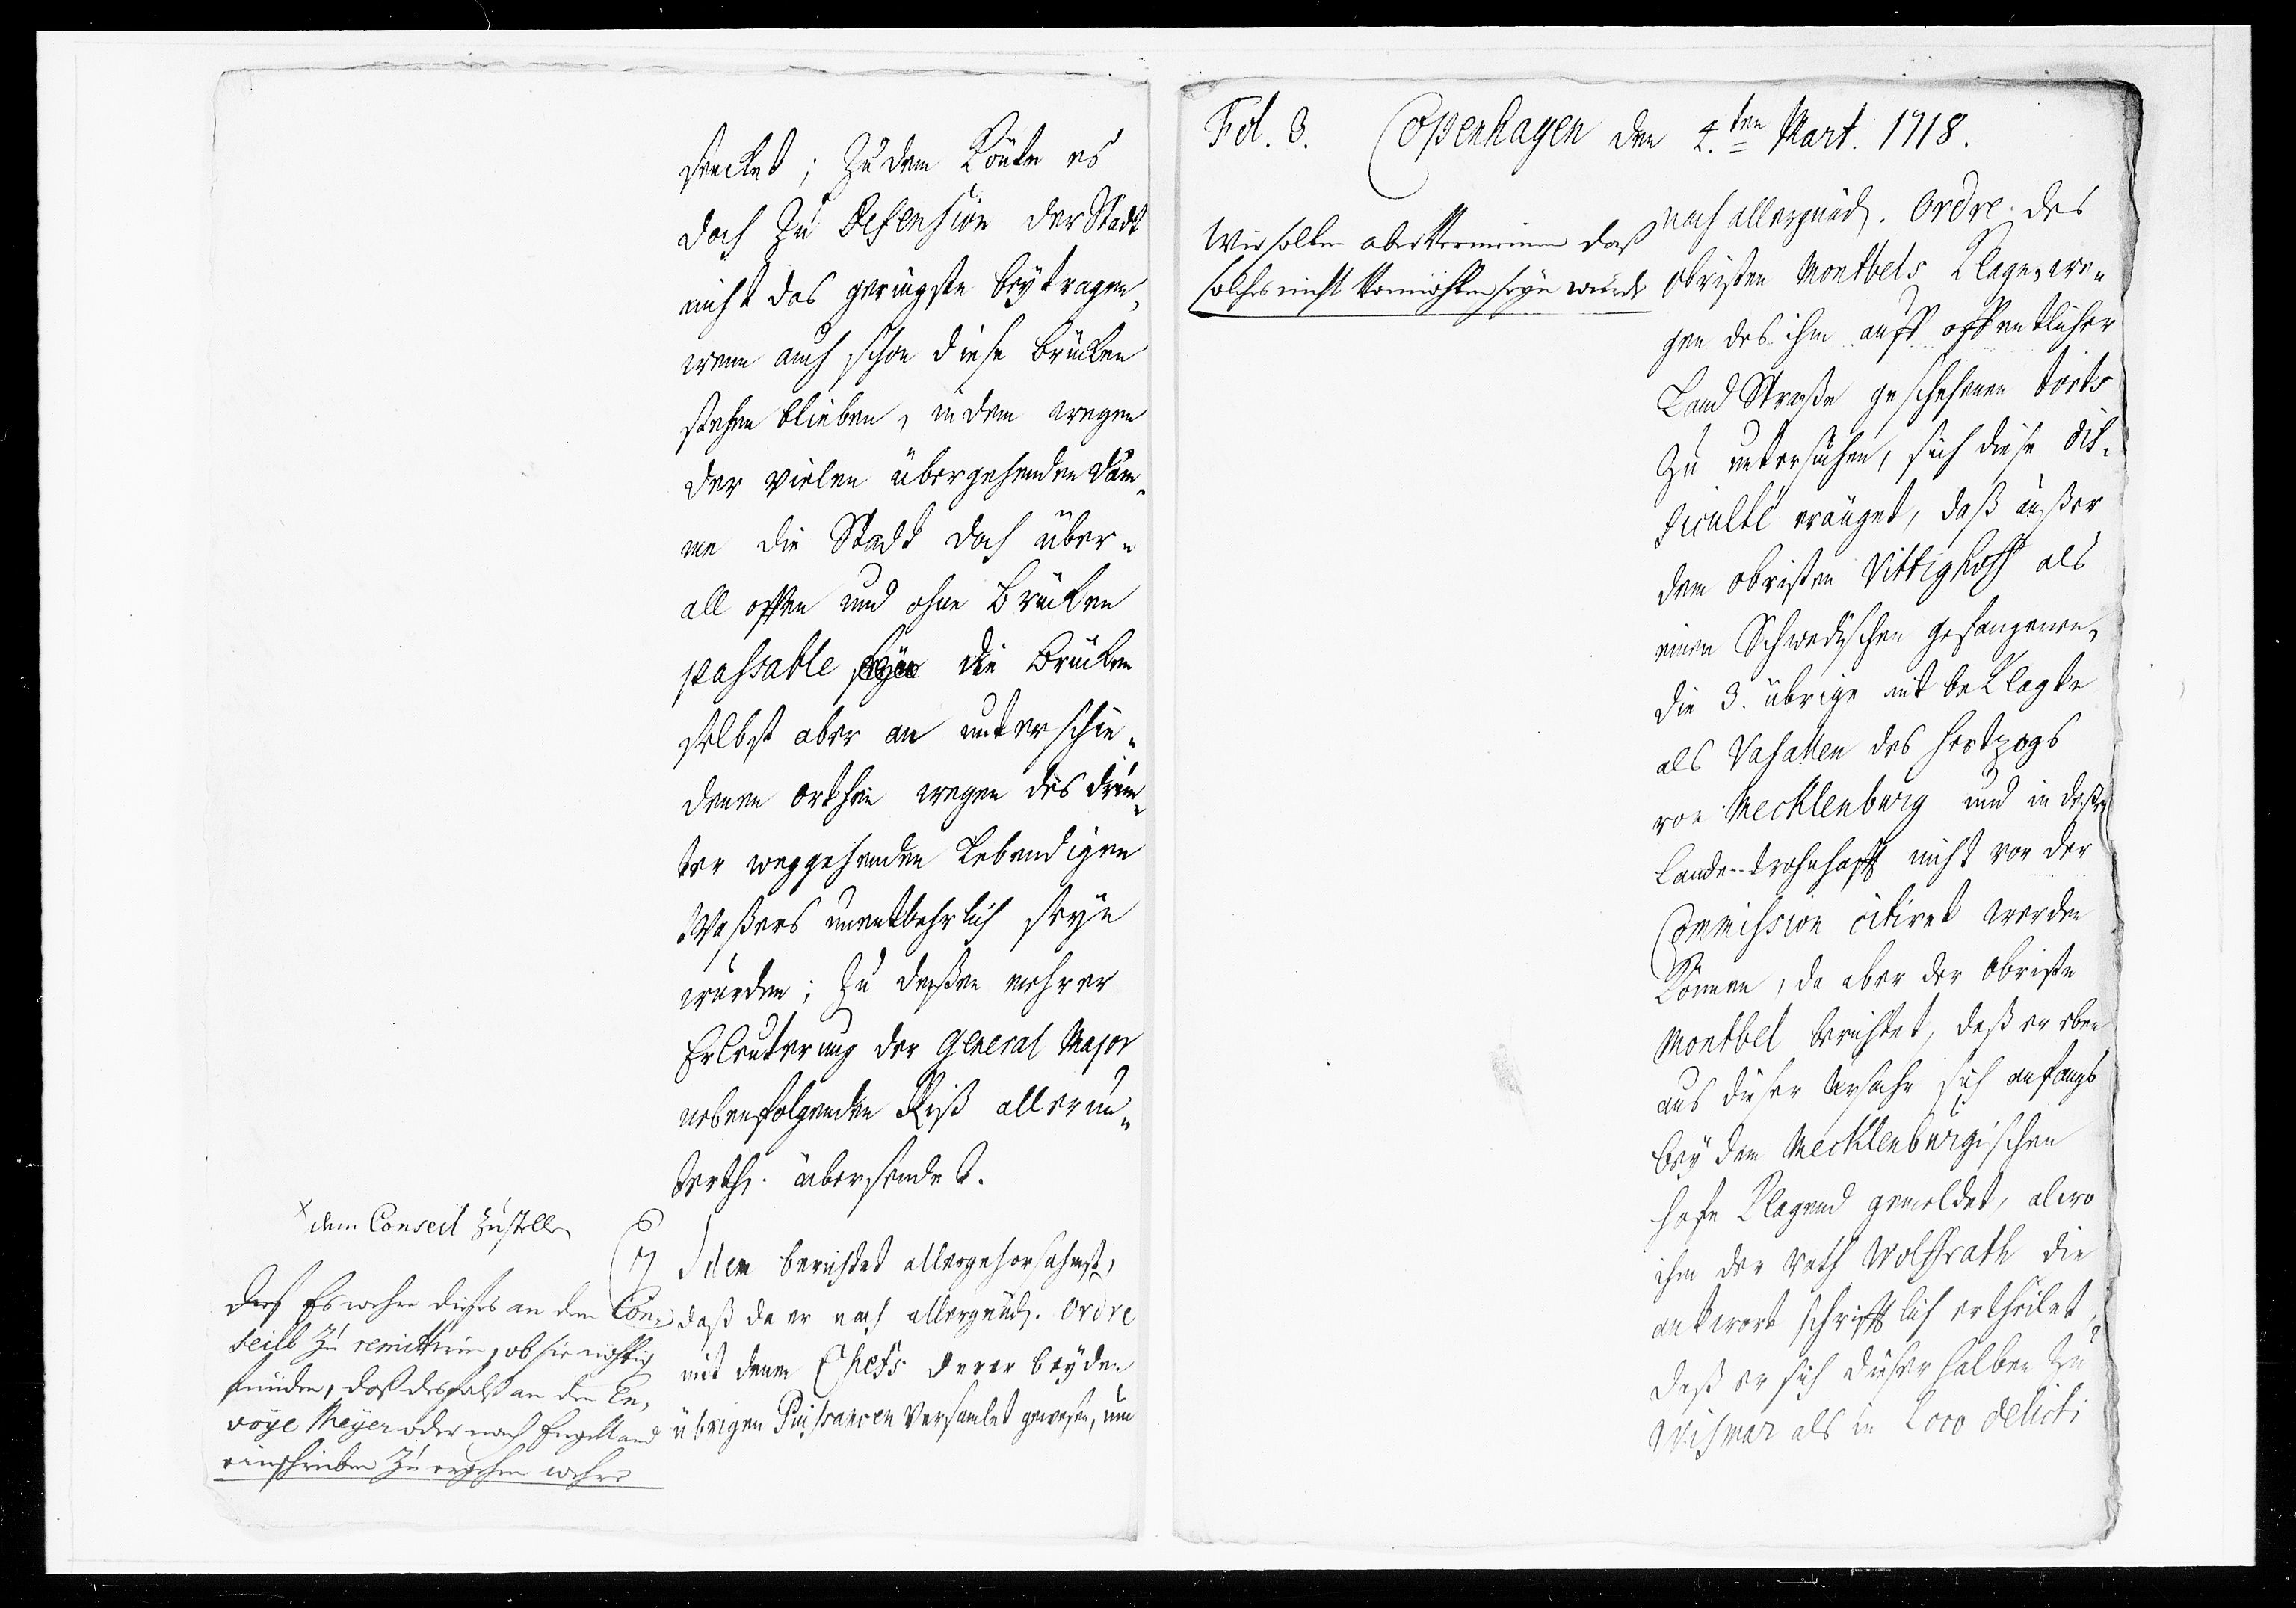 stecket; Zu dem Könte es
doch zu Defension der Stadt
nicht das geringste beytragen,
wenn auch schon diese brücken
stehen blieben, in dem wegen
der vielen übergehenden Däm-
me die Stadt doch über-
all offen und ohne Brücken
passable seyn die Brücken
selbst aber an unterschie-
denen orthen wegen des drun-
ter weggehenden Lebendigen
Waßers unentbehrlich seyn
würden; Zu deßen mehrer
Erleuterung der General Major
nebenfolgenden Riß allerun-
terth. übersendet.
x dem Conseil zustellen
Daß Es wehre dieses an dem Con-
seill zu remittiren, ob sie nöthig
finden, daß deshalb an den En-
voÿe Meÿer oder nach Engelland
zu schreiben zu erachen wehre
7 Idem berichtet allergehorsahmst,
daß da er nach allergnäd. Ordre
mit denen Chefs derer beyden
übrigen Puissancen versamlet gewesen, um
Fol. 3. Copenhagen den 4.ten Mart. 1718.
Wir solten aber Vermeinen daß
solches nicht Vonnöhten seyn würde
nach allergnäd. Ordre des
Obristen Montbels Klage, we-
gen des ihm auff offentlicher
Land Straße geschehenen torts
Zu untersuchen, sich diese dif-
ficulté eräuget, daß außer
dem Obristen Vittighoff als
einen Schwedischen gefangenen,
die 3. übrige mit beklagte
als Vasallen des Hertzogs
von Mecklenburg und in deßen
Lande wohnhafft nicht vor der
Commission citiret werden
Können, da aber der Obriste
Montbel berichtet, daß er eben
aus dieser Ursache sich anfangs
bey dem Mecklenburgischen
Hofe Klagend gemeldet, alwo
ihm der Rath Wolffrath die
antwort schrifftlich ertheilet,
daß er sich dieserhalben zu
Wismar als in Loco delicti